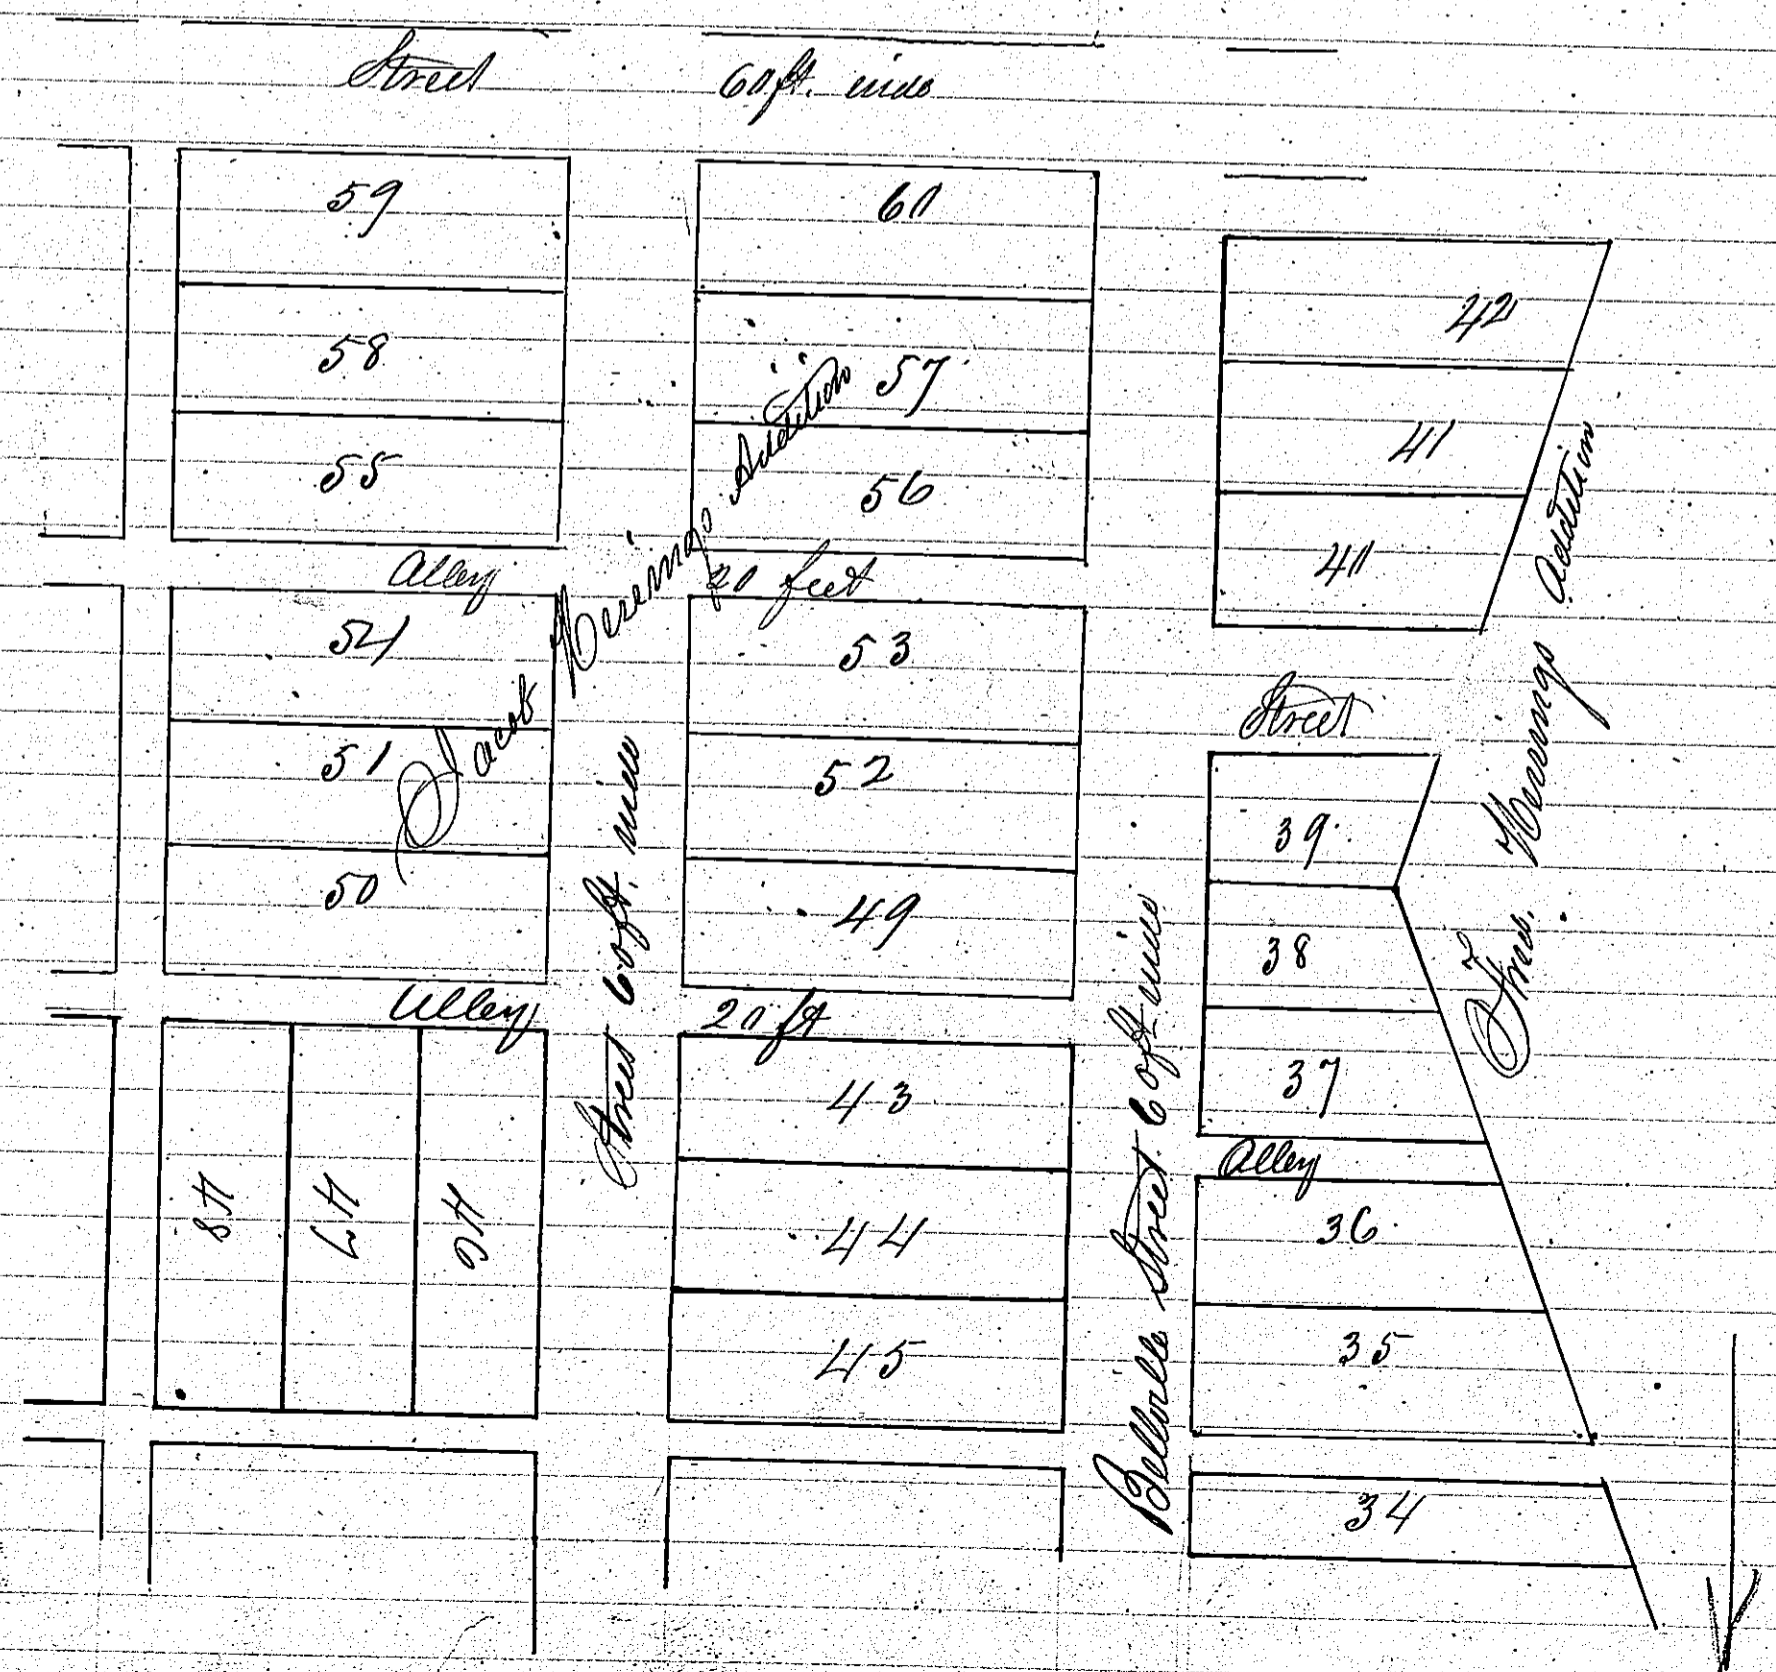 Street 60 ft. wide
59
60
58
57
55
56
42
41
40
Alley 20 feet
54
53
51
52
50
49
Jacob Addition
Street 60 ft. wide
Street
39
38
37
Alley
36
35
34
Alley 20 ft
48
47
46
43
44
45
Bellville Street 60 ft wide
Addition